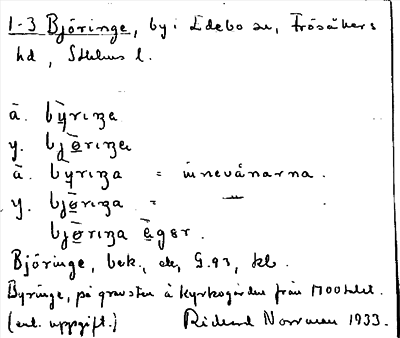 1-3 Björinge, by i Edebo sn, Frösåkers
hd, Sthlms l.
ä. by̱riŋa
y. bjø̱riŋa
ä. by̱riŋa = innevånarna.
y. bjø̱riŋa = —
bjø̱riŋa ä̱gər.
Björinge, bek., G.93, kb.
Byringe, på gravsten å kyrkogården från 1700 talet.
(enl. uppgift.) Rickard Norrman 1933.